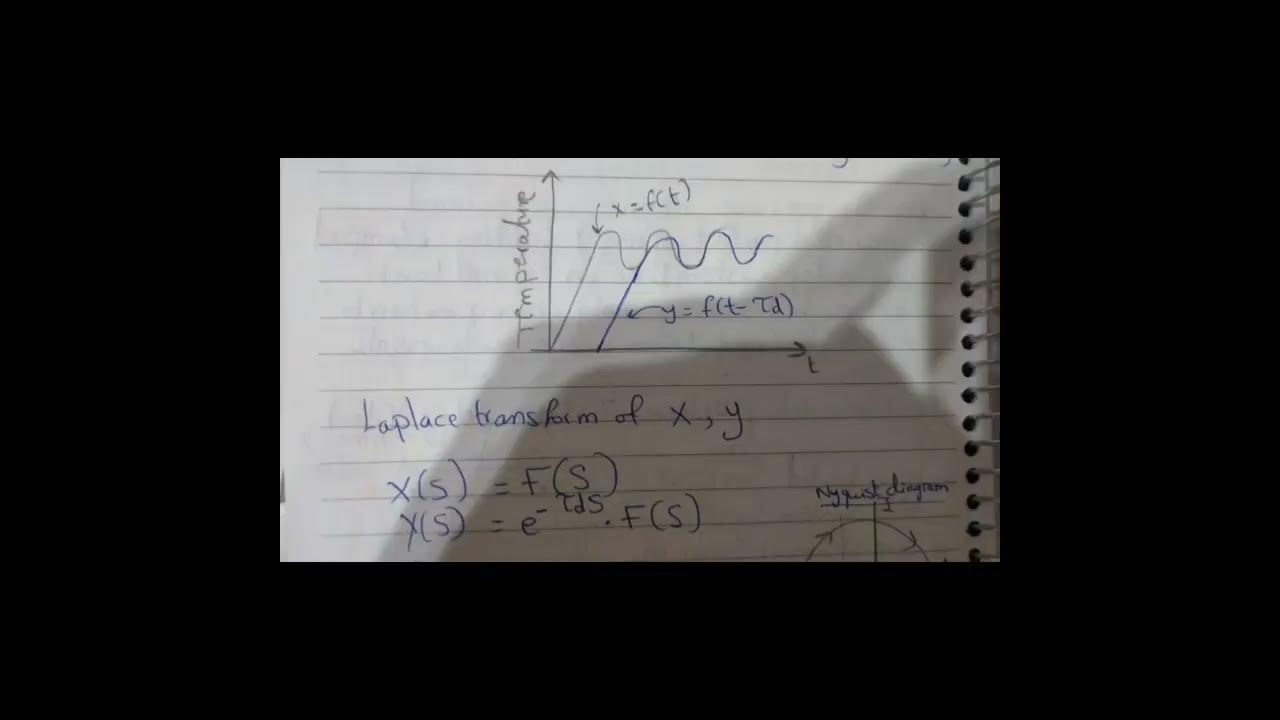 Temperature
x = f(t)
y = f(t - τd)
t
Laplace transform of x, y
X(S) = F(S)
Y(S) = e^-τdS . F(S)
Nyquist diagram
I